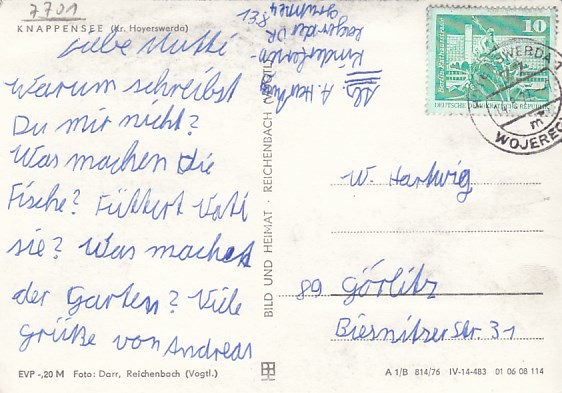 7701
KNAPPENSEE (Kr. Hoyerswerda)
Liebe Mutti
Warum schreibst
Du mir nicht?
Was machen die
Fische? Füttert Vati
sie? Was machet
der Garten? Viele
Grüße von Andreas
EVP -,20 M Foto: Darr, Reichenbach (Vogtl.)
BILD UND HEIMAT · REICHENBACH (VOGTL)
Abs. A. Hartwig
Kinderferien-
lager der DR
831 Gruppe 4
10
Berlin, Rathausstraße
DEUTSCHE DEMOKRATISCHE REPUBLIK
HOYERSWERDA
WOJEREC
W. Hartwig
89 Görlitz
Biesnitzer Str. 31
A 1/B 814/76 IV-14-483 01 06 08 114